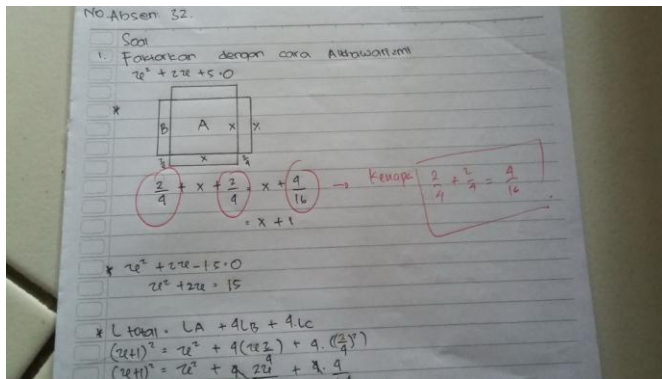 No Absen 32.
Soal
1. Faktorkan dengan cara Alkhawarizmi
x² + 2x + 5 = 0
*
B A x x
x 2/4
2/4 + x + 2/4 . x + 4/16 → Kenapa 2/4 + 2/4 = 4/16
= x + 1
* x² + 2x - 15 = 0
x² + 2x = 15
* L total = LA + 4LB + 4.LC
(x+1)² = x² + 4(x 2/4) + 4.((2/4)²)
(x+1)² = x² + 4 2x/4 + 4. 4